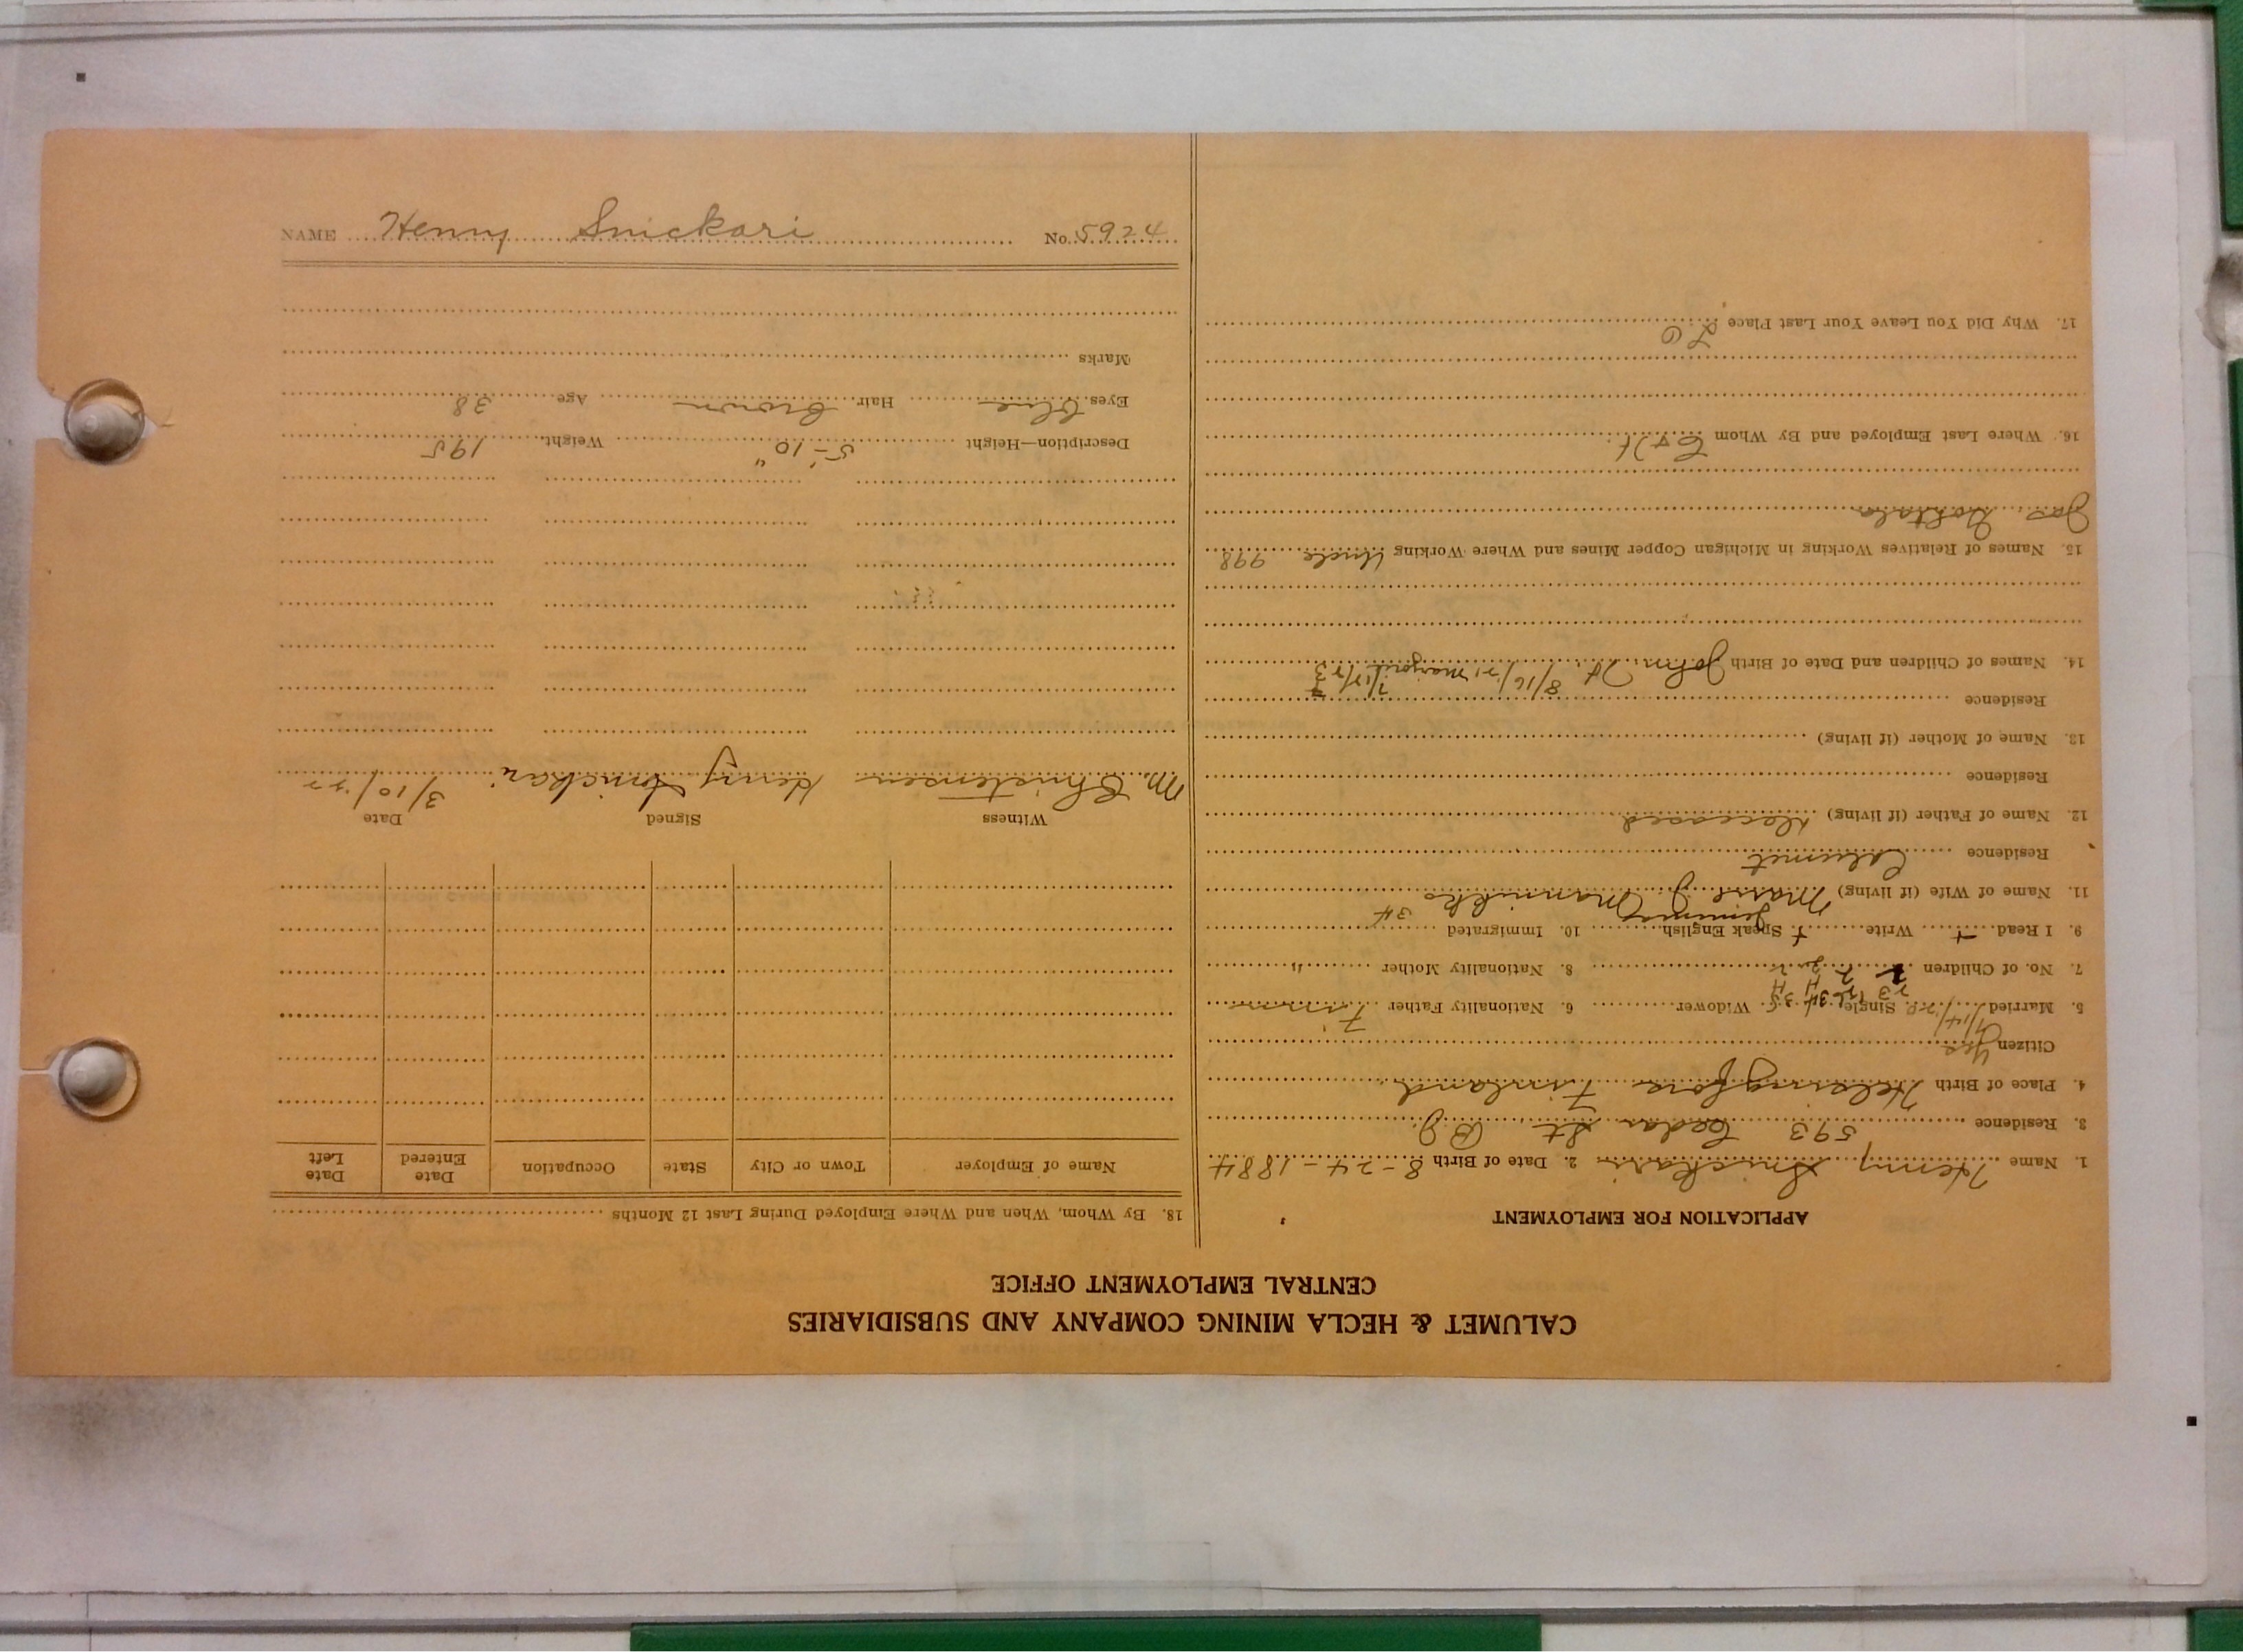 CALUMET & HECLA MINING COMPANY AND SUBSIDIARIES
CENTRAL EMPLOYMENT OFFICE
APPLICATION FOR EMPLOYMENT
1. Name Henry Snickari 2. Date of Birth 8-24-1884
3. Residence 593 Cedar St
4. Place of Birth Helsingfors Finland
Citizen Yes
5. Married Single Widower 6. Nationality Father Finn
7. No. of Children 8. Nationality Mother "
9. I Read + Write + Speak English 10. Immigrated
11. Name of Wife (if living) Marie J. Mannikko
Residence Calumet
12. Name of Father (if living) deceased
Residence
13. Name of Mother (if living)
Residence
14. Names of Children and Date of Birth John H
8/16/21 Marjorie 7/17/23
15. Names of Relatives Working in Michigan Copper Mines and Where Working Uncle 998
16. Where Last Employed and By Whom C & H
17. Why Did You Leave Your Last Place
18. By Whom, When and Where Employed During Last 12 Months
Name of Employer Town or City State Occupation Date Entered Date Left
Witness Signed Date
M. Christensen Henry Snickari 3/10/22
Description—Height 5'-10" Weight 195
Eyes blue Hair brown Age 38
Marks
NAME Henry Snickari No. 5924